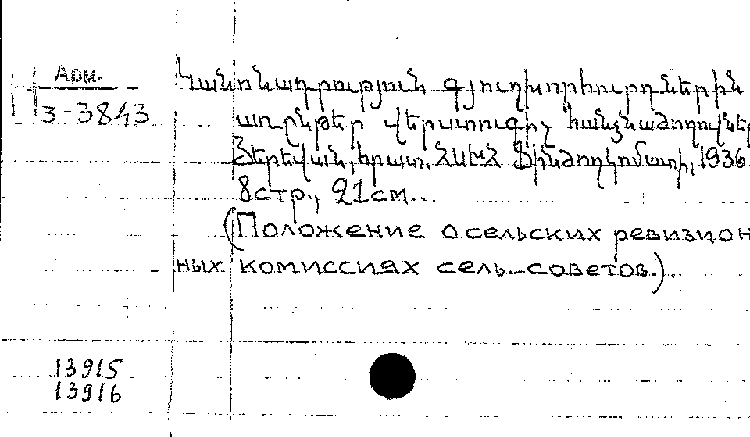 Арм.
3-3843
Կանոնադրություն գյուղխորհուրդներին
առընթեր վերստուգիչ հանձնաժողովների
Յերևան, հրատ. ՀՍԽՀ Ֆինժողկոմատի, 1936.
8стр., 21см.
(Положение о сельских ревизион
ных комиссиях сель-советов.)
13915
13916